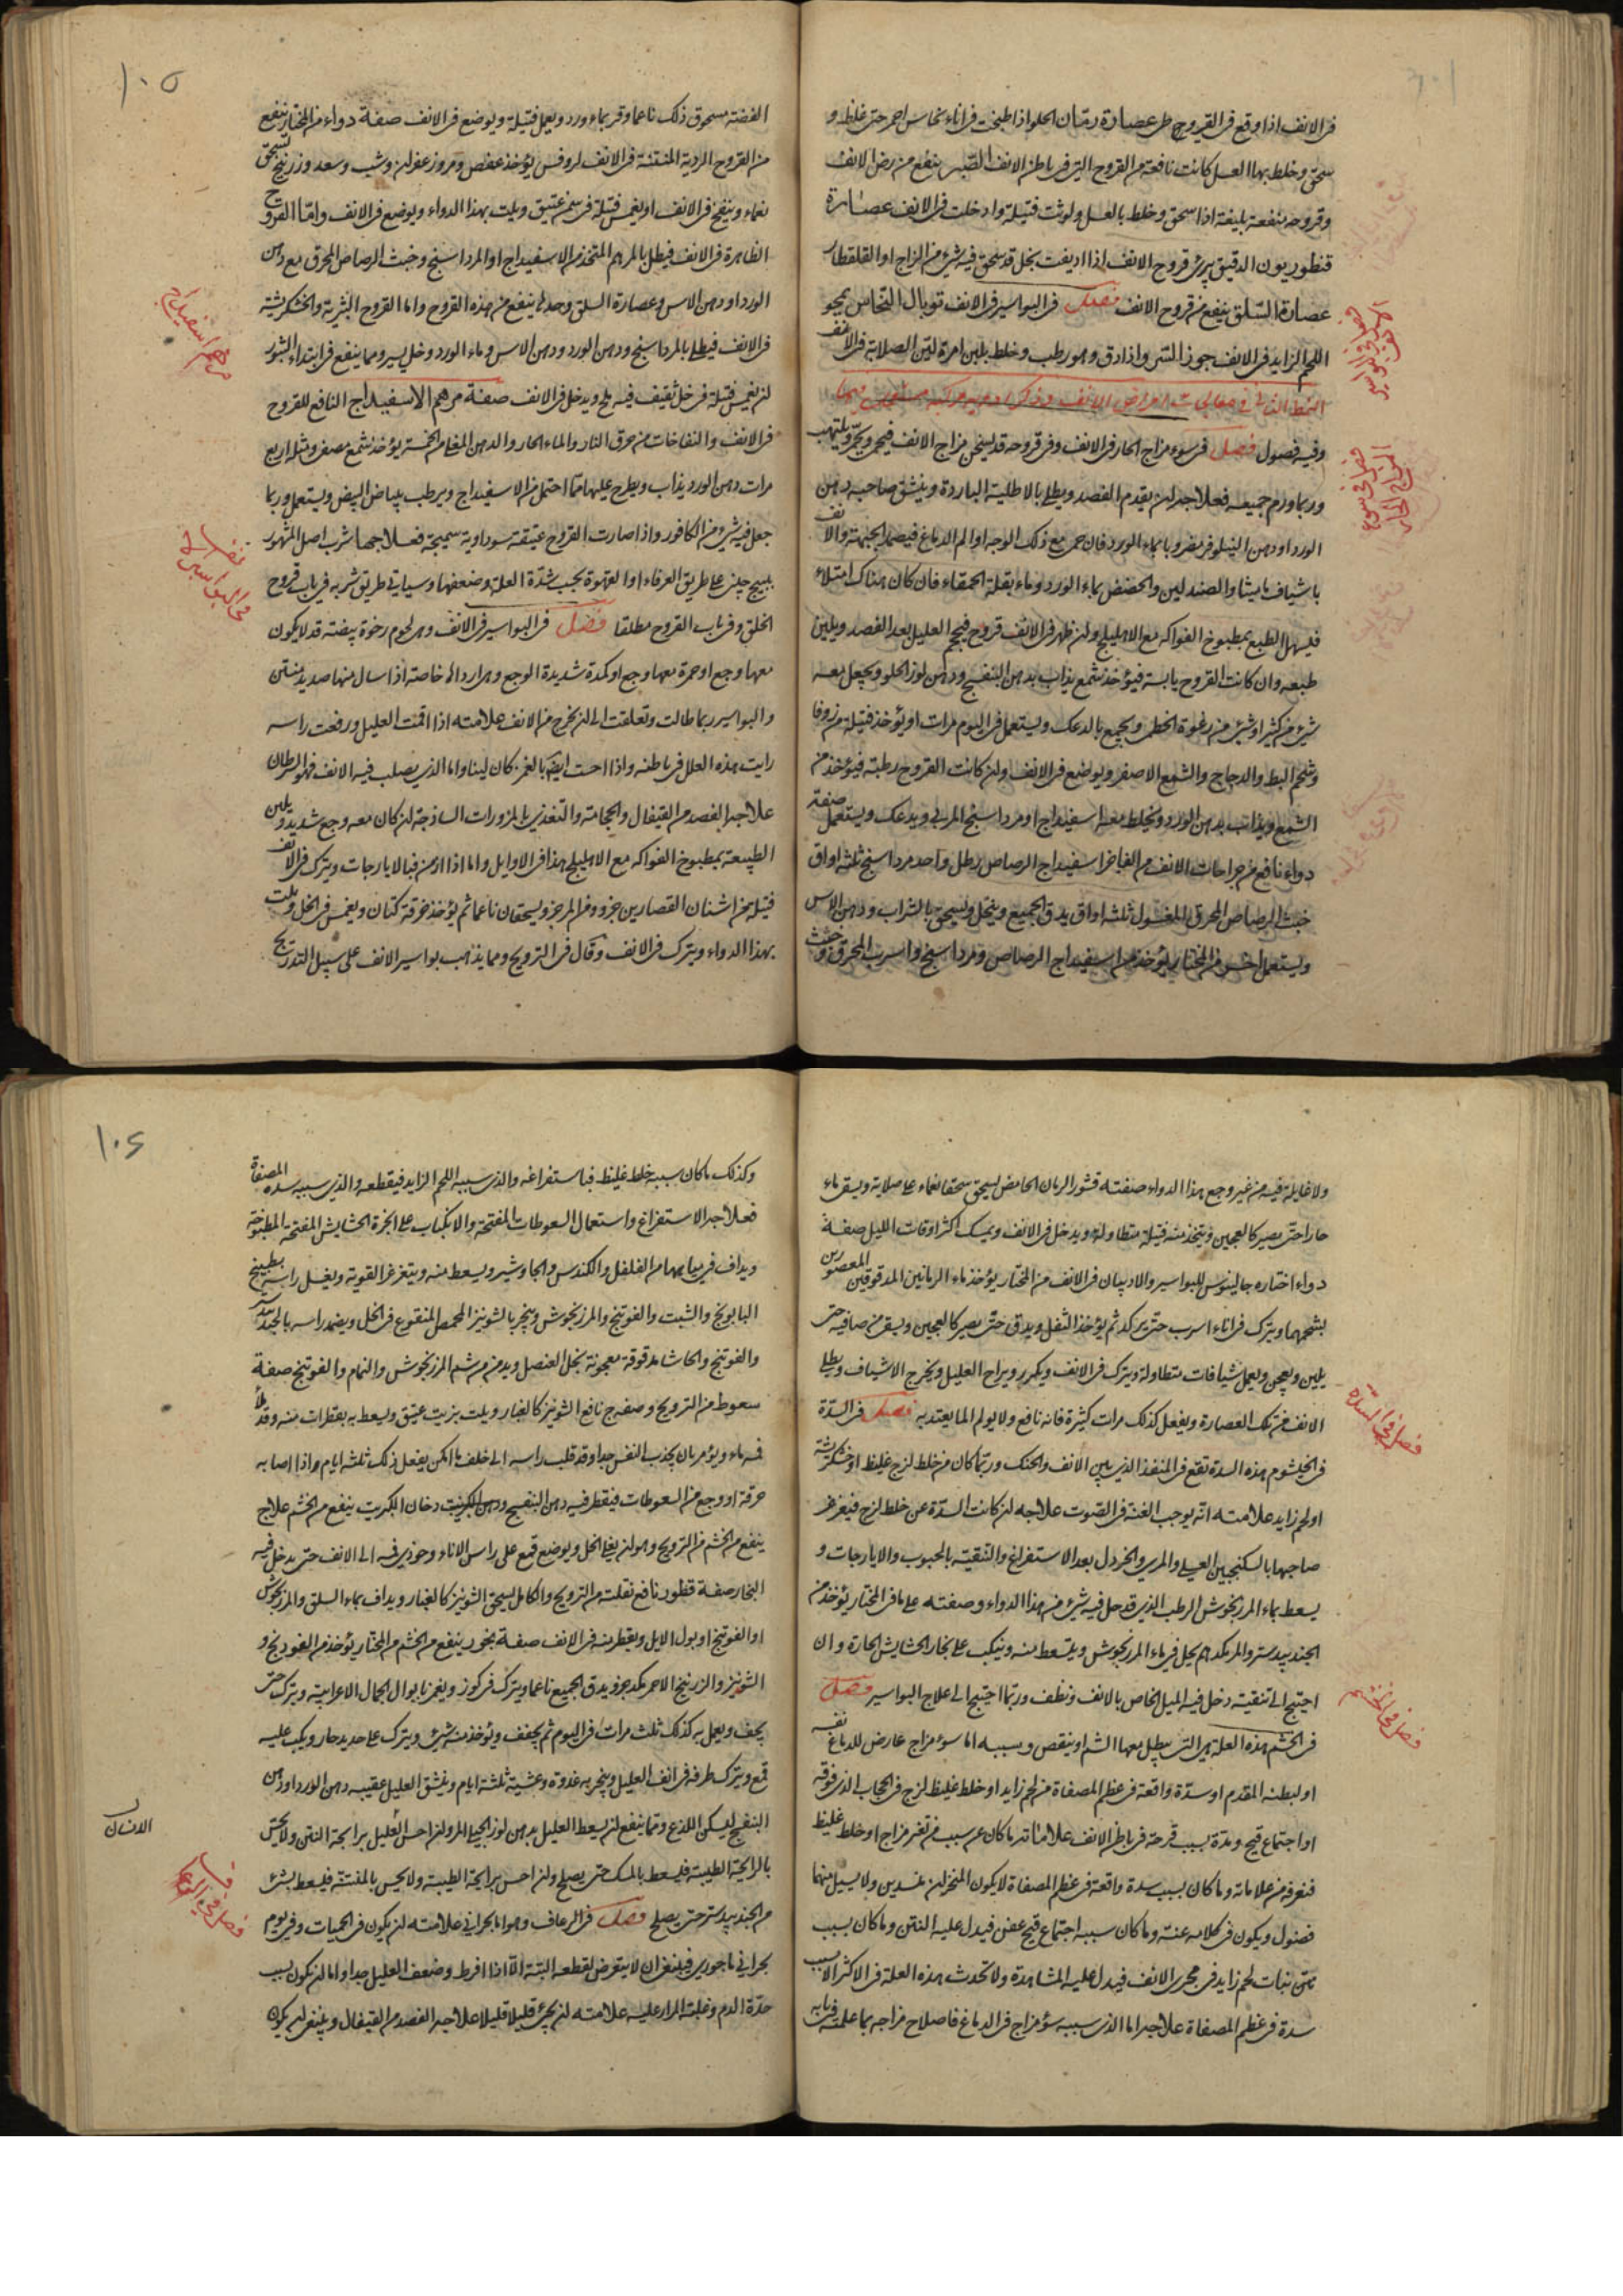 في الانف اذا وقع في القروح طر عصارة رمان الحلو اذا طبخت في اناء نحاس احمر حتى غلظ و
سحق وخلط بهما العسل كانت نافعة من القروح التي في باطن الانف الصبر ينفع من رض الانف
وقروحه منفعة بليغة اذا سحق وخلط بالعسل ولوثت فتيلة وادخلت في الانف عصارة
قنطوريون الدقيق يبرئ قروح الانف اذا اديفت بخل قد سحق فيه شئ من الزاج او القلقطار
عصارة السلق ينفع من قروح الانف فصل في البواسير في الانف توبال النحاس يمحو
اللحم الزايد في الانف جوز السرو اذا دق وهو رطب وخلط بلبن امرة لين الصلابة في الانف
النمط الثاني في معالجات امراض الانف وذكر ادوية مركبة
وفيه فصول فصل في سوء مزاج الحار في الانف وفي قروحه قد يسخن مزاج الانف فيحمى ويحمر ويلتهب
وربما ورم جميعه فعلاجه ان يقدم الفصد ويطلى بالاطلية الباردة وينشق صاحبه دهن
الورد او دهن النيلوفر مضروبا بماء الورد فان حمي مع ذلك الوجه او الم الدماغ فيضمد الجبهة والانف
باشياف ماميثا والصندلين والحضض بماء الورد وماء بقلة الحمقاء فان كان هناك امتلاء
فليسهل الطبع بمطبوخ الفواكه مع الاهليلج وان ظهر في الانف قروح فيحجم العليل بعد الفصد ويلين
طبعه وان كانت القروح يابسة فيؤخذ شمع يذاب بدهن البنفسج ودهن لوز الحلو ويجعل معه
شئ من كثيرا وشئ من رغوة الخطمى ويجمع بالدعك ويستعمل في اليوم مرات او يؤخذ فتيلة من زوفا
وشحم البط والدجاج والشمع الاصفر ويوضع في الانف وان كانت القروح رطبة فيؤخذ من
الشمع ويذاب بدهن الورد ويخلط معه اسفيداج او مرداسنج المربى ويدعك ويستعمل صفة
دواء نافع من جراحات الانف من الفاخر اسفيداج الرصاص رطل واحد مرداسنج ثلثة اواق
خبث الرصاص المحرق المغسول ثلثه اواق يدق الجميع وينخل ويسحق بالشراب ودهن الاس
ويستعمل اخر من المختار يؤخذ من اسفيداج الرصاص ومرداسنج واسرب المحرق وخبث
فصل في سوء المزاج الحار
١٠٥
الفضة مسحوق ذلك ناعما وقر بماء ورد ويعمل فتيلة ويوضع في الانف صفة دواء من المختار ينفع
من القروح الردية المنتنة في الانف لروفس يؤخذ عفص ومر وزعفران وشب وسعد وزرنيخ يسحق
نعماء وينفخ في الانف او يغمس فتيلة في سمن عتيق ويلت بهذا الدواء ويوضع في الانف واما القروح
الظاهرة في الانف فيطلى بالمرهم المتخذ من الاسفيداج او المرداسنج وخبث الرصاص المحرق مع دهن
الورد او دهن الاس وعصارة السلق وحدها ينفع من هذه القروح واما القروح البثرية والخشكريشة
في الانف فيطلى بالمرداسنج ودهن الورد ودهن الاس وماء الورد وخل يسير ومما ينفع في ابتداء البثور
ان يغمس فتيلة في خل ثقيف فيه ملح ويدخل في الانف صفة مرهم الاسفيداج النافع للقروح
في الانف والنفاخات من حرق النار والماء الحار والدهن المغلى من الخمسة يؤخذ شمع مصفى ومثله اربع
مرات دهن الورد يذاب ويطرح عليها ما احتمل من الاسفيداج ويرطب ببياض البيض ويستعمل وربما
جعل فيه شئ من الكافور واذا صارت القروح عتيقة سوداوية سميجة فعلاجها شرب اصل المشهور
على طريق العرفاء او القهوة بحسب شدة العلة وضعفها وسياتي طريق شربه في باب قروح
الحلق وفي باب القروح مطلقا فصل في البواسير في الانف وهي لحوم رخوة بيضة قد لا يكون
معها وجع او حمرة معها وجع او كمدة شديدة الوجع وهي اردأ خاصة اذا سال منها صديد منتن
والبواسير ربما طالت وتعلقت الى ان تخرج من الانف علامته اذا اقمت العليل ورفعت راسه
رايت هذه العلل في باطنه واذا احست ايضا بالغمز كان لينا واما الذي يصلب فيه الانف فهو السرطان
علاجه الفصد من القيفال والحجامة والتغذي بالمزورات الساذجة ان كان معه وجع شديد ويلين
الطبيعة بمطبوخ الفواكه مع الاهليلج هذا في الاوايل واما اذا ازمن فبالايارجات ويترك في الانف
فتيلة من اشنان القصارين جزو ومن المر جزو يسحقان ناعما ثم يؤخذ خرقة كتان ويغمس في الخل ويلت
بهذا الدواء ويترك في الانف وقال في الترويح ومما يذهب بواسير الانف على سبيل التدريج
مرهم اسفيداج
في البواسير
ولا غايلة فيه من غير وجع هذا الدواء صفته قشور الرمان الحامض يسحق سحقا نعماء على صلاية ويسقى ماء
حارا حتى يصير كالعجين ويتخذ منه فتيلة متطاولة ويدخل في الانف ويمسك اكثر اوقات الليل صفة
دواء اختاره جالينوس للبواسير والاربيان في الانف من المختار يؤخذ ماء الرمانين المدقوقين المعصورين
بشحمهما ويترك في اناء اسرب حتى يركد ثم يؤخذ الثفل ويدق حتى يصير كالعجين ويسقى من صافيه حتى
يلين ويعجن ويعمل شيافات متطاولة ويترك في الانف ويكرر ويراح العليل ويخرج الاشياف ويطلى
الانف من تلك العصارة ويفعل كذلك مرات كثيرة فانه نافع ولا يولم الما يعتد به فصل في السدة
في الخيشوم هذه السدة تقع في المنفذ الذي بين الانف والحنك وربما كان من خلط لزج غليظ او خشكريشة
او لحم زايد علامته انه يوجب الغنة في الصوت علاجه ان كانت السدة عن خلط لزج فيغرغر
صاحبها بالسكنجبين العسلي والمري والخردل بعد الاستفراغ والتنقية بالحبوب والايارجات و
يسعط بماء المرزنجوش الرطب الذي قد حل فيه شئ من هذا الدواء وصفته على ما في المختار يؤخذ من
الجندبيدستر والمر يحل في ماء المرزنجوش ويستعط منه وينكب على بخار الحشايش الحارة وان
احتيج الى تنقيته دخل فيه الميل الخاص بالانف ونظف وربما احتيج الى علاج البواسير فصل
في الخشم هذه العلة هي التي يبطل معها الشم او ينقص وسببه اما سوء مزاج عارض للدماغ نفسه
او لبطنه المقدم او سدة واقعة في عظم المصفاة من لحم زايد او خلط غليظ لزج في الحجاب الذي فوقه
او اجتماع قيح ومدة بسبب قرحة في باطن الانف علاماته ما كان عن سبب من تغير مزاج او خلط غليظ
فتعرفه من علاماته وما كان بسبب سدة واقعة في عظم المصفاة لا يكون المنخران منسدين ولا يسيل منهما
فضول ويكون في كلامه غنة وما كان سببه اجتماع قيح عفن فيدل عليه النتن وما كان بسبب
نبات لحم زايد في مجرى الانف فيدل عليه المشاهدة ولا تحدث هذه العلة في الاكثر الا بسبب
سدة في عظم المصفاة علاجه اما الذي سببه سؤ مزاج في الدماغ فاصلاح مزاجه بما علمته في بابه
فصل في السدة
فصل في الخشم
١٠٤
وكذلك ما كان سببه خلط غليظ فباستفراغه والذي سببه اللحم الزايد فيقطعه والذي سببه سدة المصفاة
فعلاجه الاستفراغ واستعمال السعوطات المفتحة والانكباب على ابخرة الحشايش المفتحة المطبوخة
ويداف في مياهها من الفلفل والكندس والجاوشير ويسعط منه ويتغرغر القوية ويغسل راسه بطبيخ
البابونج والشبت والفوتنج والمرزنجوش ويبخر بالشونيز المحمص المنقوع في الخل ويضمد راسه بالجندبيدستر
والفوتنج والحاشا مدقوقة معجونة بخل العنصل ويدمن شم المرزنجوش والنمام والفوتنج صفة
سعوط من الترويح وصفه ج نافع الشونيز كالغبار ويلت بزيت عتيق ويسعط به بقطرات منه وقد ملأ
فمه ماء ويؤمر بان يجذب النفس جدا وقد قلب راسه الى خلف ما امكن يفعل ذلك ثلثه ايام واذا اصابه
حرقة او وجع من السعوطات فيقطر فيه دهن البنفسج دخان الكبريت ينفع من الخشم علاج
ينفع من الخشم من الترويح وهو ان يغلى الخل ويوضع قمع على راس الاناء الى الانف حتى يدخل فيه
البخار صفة قطور نافع نقلت من الترويح والكامل يسحق الشونيز كالغبار ويداف بماء السلق والمرزنجوش
او الفوتنج او بول الابل ويقطر منه في الانف صفة بخور ينفع من الخشم من المختار يؤخذ من الفودنج و
الشونيز والزرنيخ الاحمر جزو يدق الجميع ناعما ويترك في كوز ويغمر بابوال الجمال الاعرابية ويترك حتى
يجف ويعمل به كذلك ثلث مرات في اليوم ثم يجفف ويؤخذ منه شئ ويترك على حديد حار ويكب عليه
قمع ويترك طرفه في انف العليل ويتبخر به غدوة وعشية ثلثة ايام وينشق العليل عقيبه دهن الورد او دهن
البنفسج ليسكن اللذع ومما ينفع ان يسعط العليل بدهن لوز المر وان احس العليل برايحة النتن ولا يحس
بالرايحة الطيبة فليسعط بالمسك حتى يصلح وان احس برايحة الطيبة ولا يحس بالمنتنة فليسعط بشئ
من الجندبيدستر حتى يصلح فصل في الرعاف وهو اما بحراني علامته ان يكون في الحميات وفي يوم
بحراني باحوري فينبغي ان لا يتعرض لقطعه البتة الا اذا افرط وضعف العليل جدا واما ان يكون بسبب
حدة الدم وغلبة المرار عليه علامته ان يجئ قليلا قليلا علاجه الفصد من القيفال وينبغي ان يكون
الانسان
فصل في الرعاف